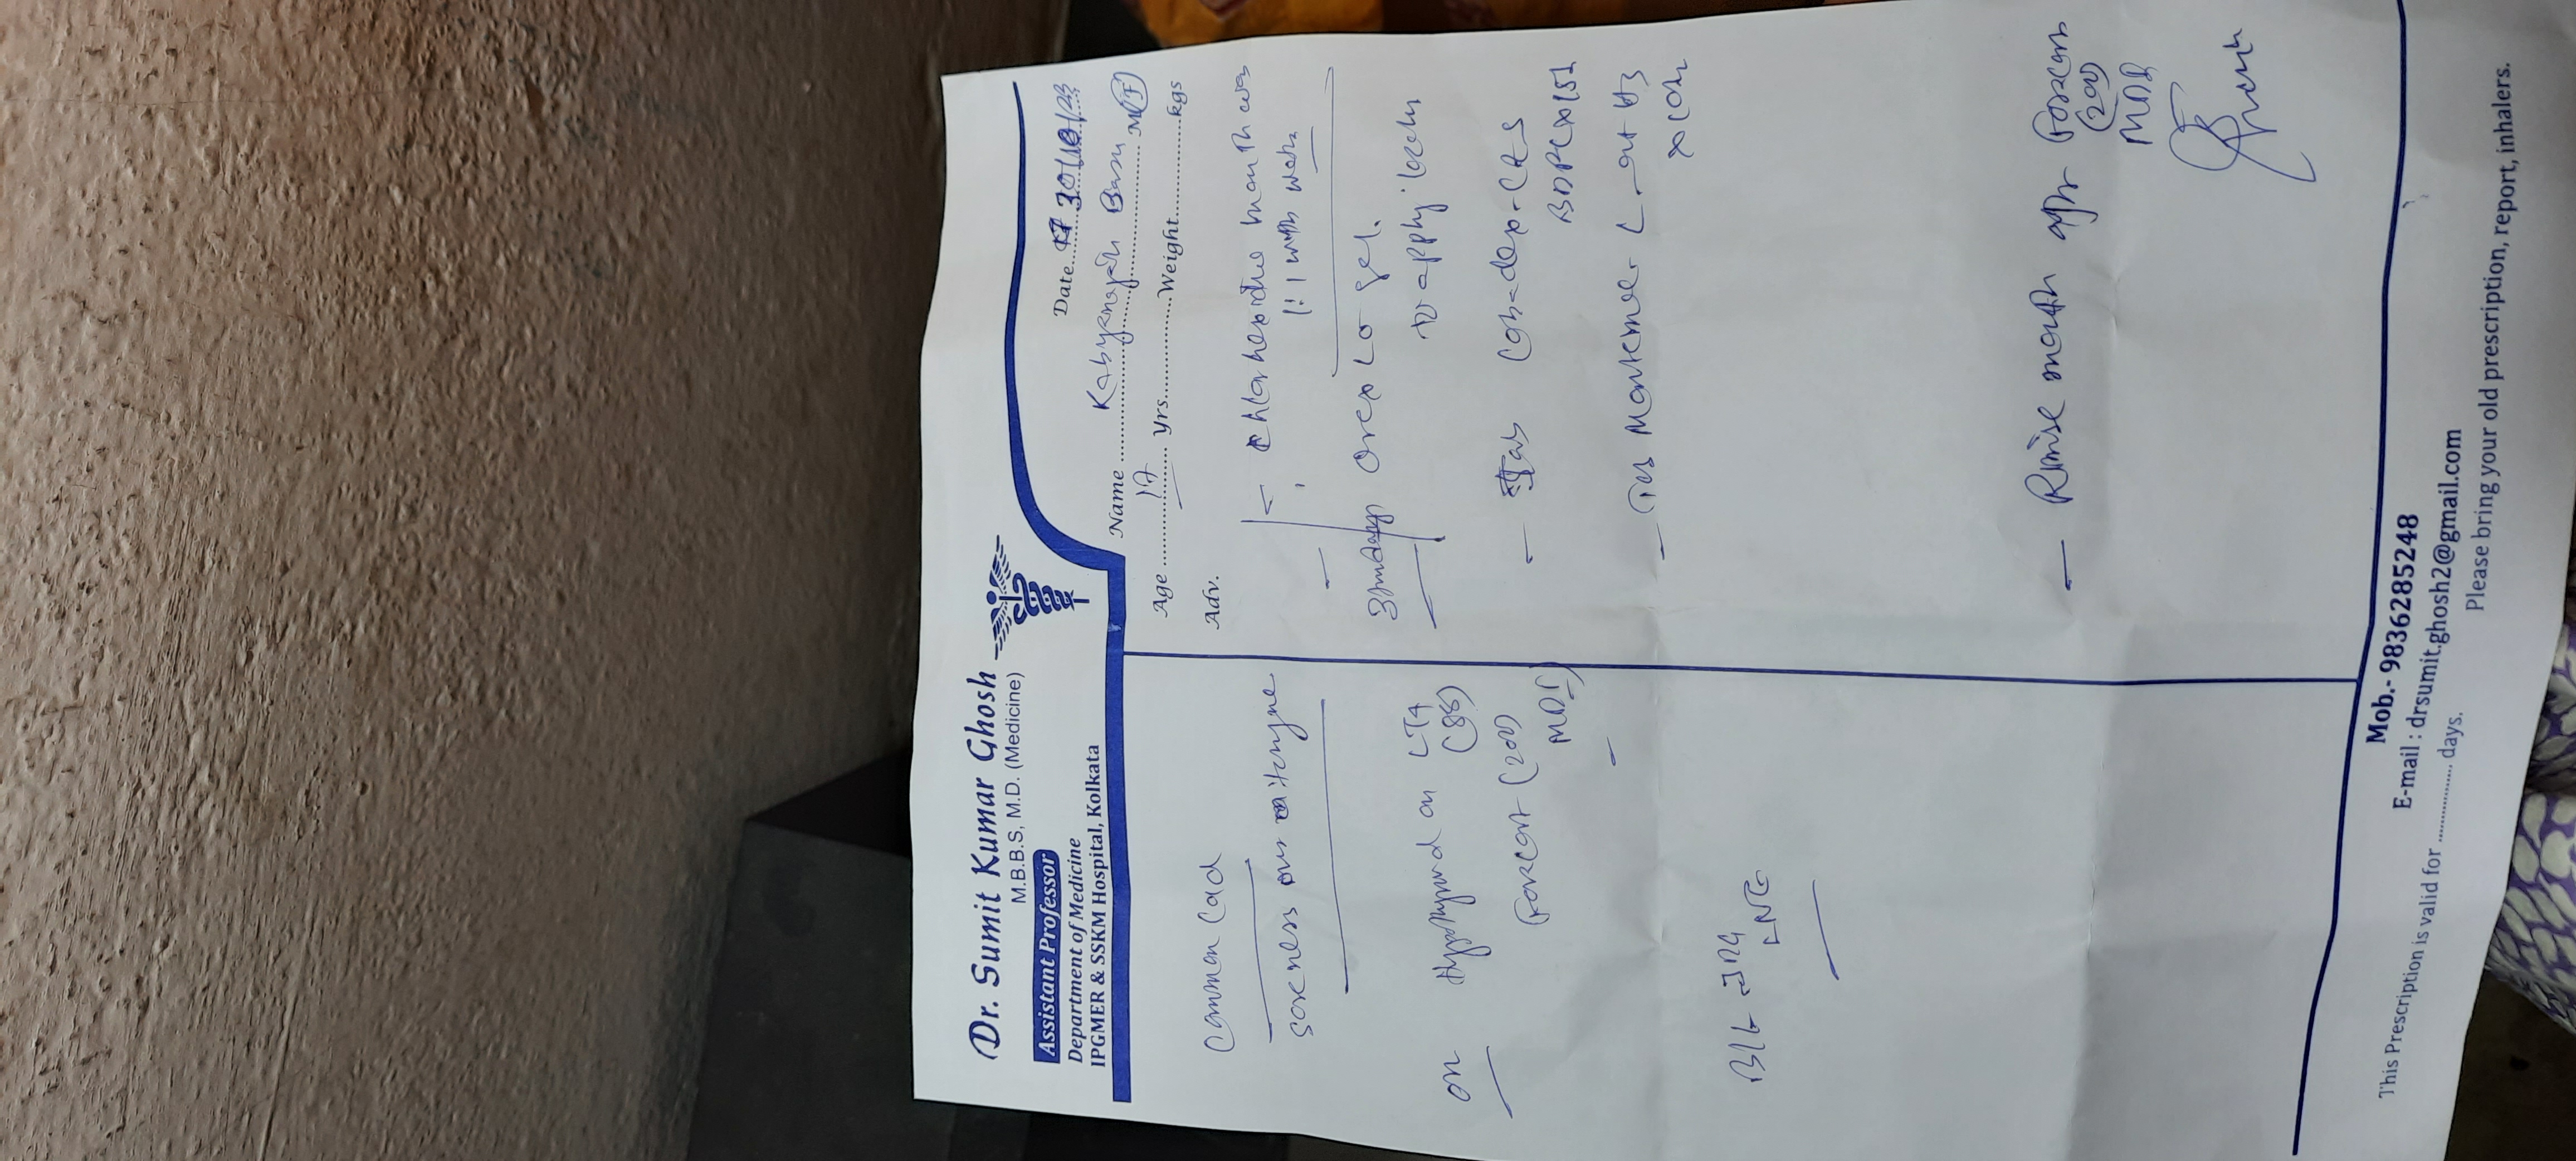 Dr. Sumit Kumar Ghosh
M.B.B.S, M.D. (Medicine)
Assistant Professor
Department of Medicine
IPGMER & SSKM Hospital, Kolkata
Date 30/10/23
Name Kabyamayee Basu M/F
Age 17 Yrs. Weight kgs
Adv.
Common Cold
soreness over tongue
on Hypothyroid on LT4
(88)
Foracort (200)
MDI
B/L
- Chlorhexidine mouth wash
1:1 with water
- Orexlo gel.
to apply locally
- Tab Cobadex-CZS
- Tab Montemac
- Rinse mouth after Foracort
(200)
MDI
Mob.- 9836285248
E-mail : drsumit.ghosh2@gmail.com
This Prescription is valid for ............... days. Please bring your old prescription, report, inhalers.